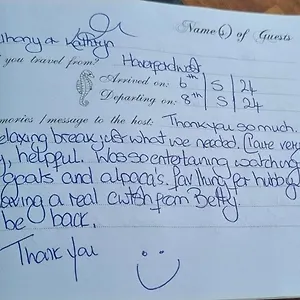 Name(s) of Guests
thony & Kathryn
you travel from? Haverfordwest
Arrived on: 6th | 5 | 24
Departing on: 8th | 5 | 24
mories / message to the host: Thankyou so much.
elaxing break, just what we needed. Clare very
, helpful. Was so entertaining watching
goats and alpaca's. for hubby
aving a real cwtch from Betty.
be back.
Thank you